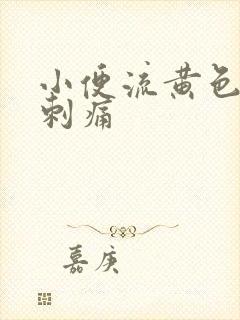 小便流黄色
刺痛
嘉庚